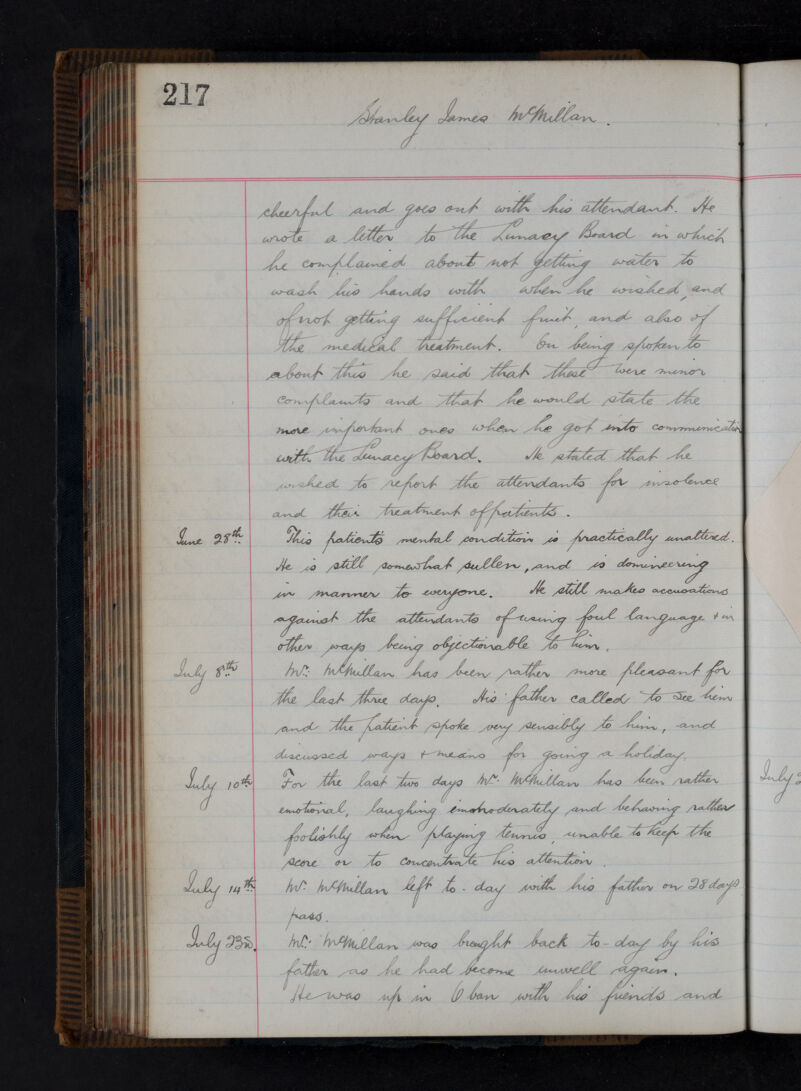 217
Stanley James McMillan.
cheerful and goes out with his attendant. He
wrote a letter to the Lunacy Board in which
he complained about not getting water to
wash his hands with when he wished, and
of not getting sufficient fruit, and also of
the medical treatment. On being spoken to
about this he said that these were minor
complaints and that he would state the
more important ones when he got into communication
with the Lunacy Board. He stated that he
wished to report the attendants for insolence
and their treatment of patients.
June 28th. This patient's mental condition is practically unaltered.
He is still somewhat sullen, and is domineering
in manner to everyone. He still makes accusations
against the attendants of using foul language + in
other ways being objectionable to him.
July 8th. Mr. McMillan has been rather more pleasant for
the last three days. His father called to see him
and the patient spoke very sensibly to him, and
discussed ways + means for going a holiday.
July 10th. For the last two days Mr. McMillan has been rather
emotional, laughing immoderately and behaving rather
foolishly when playing tennis, unable to keep the
score or to concentrate his attention.
July 14th. Mr. McMillan left to-day with his father on 28 days
pass.
July 23rd. Mr. McMillan was brought back to-day by his
father as he had become unwell again.
He was up in Oban with his friends and
July